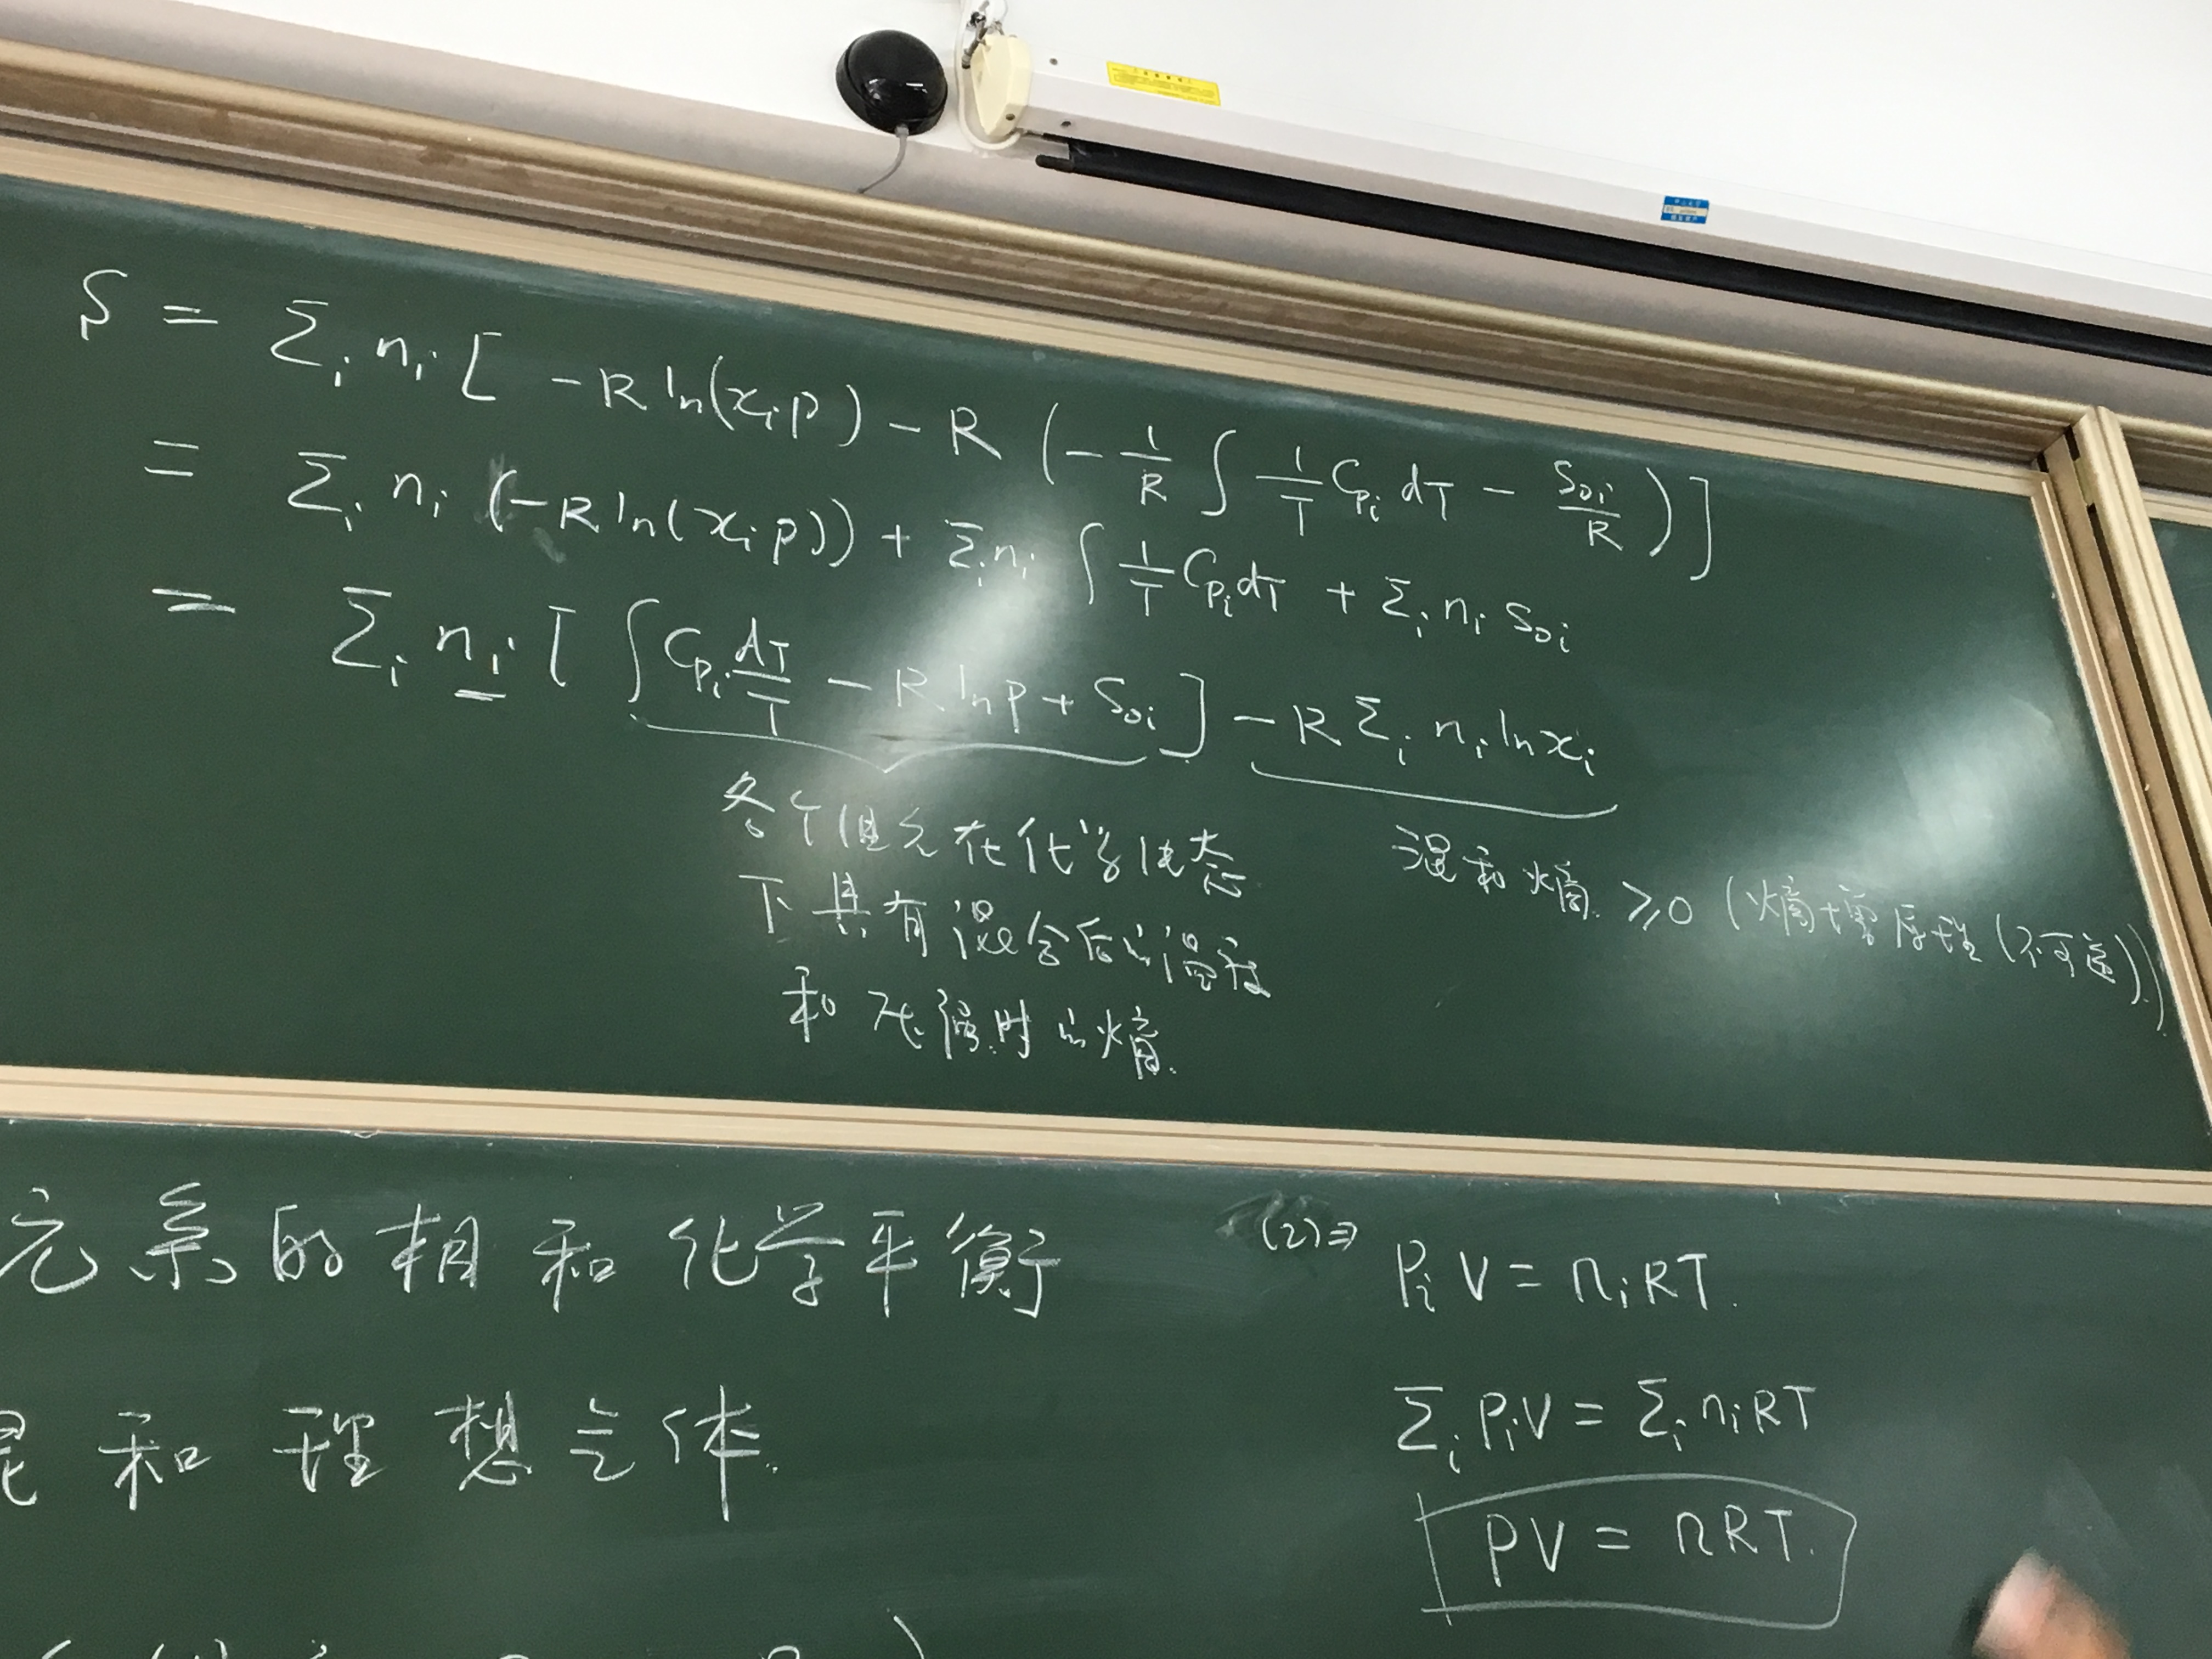 S = Σᵢ nᵢ [ -R ln(xᵢp) - R (-1/R ∫ 1/T Cₚᵢ dT - S₀ᵢ/R ) ]
= Σᵢ nᵢ (-R ln(xᵢp)) + Σᵢnᵢ ∫ 1/T Cₚᵢ dT + Σᵢ nᵢ S₀ᵢ
= Σᵢ nᵢ [ ∫ Cₚᵢ dT/T - R ln p + S₀ᵢ ] - R Σᵢ nᵢ ln xᵢ
各个组元在化学纯态
下具有混合后的温度
和压强时的熵.
混和熵 ≥0 (熵增原理(不可逆))
元系的相和化学平衡
混和理想气体.
(2)⇒ Pᵢ V = nᵢRT.
Σᵢ PᵢV = Σᵢ nᵢRT
PV = nRT.